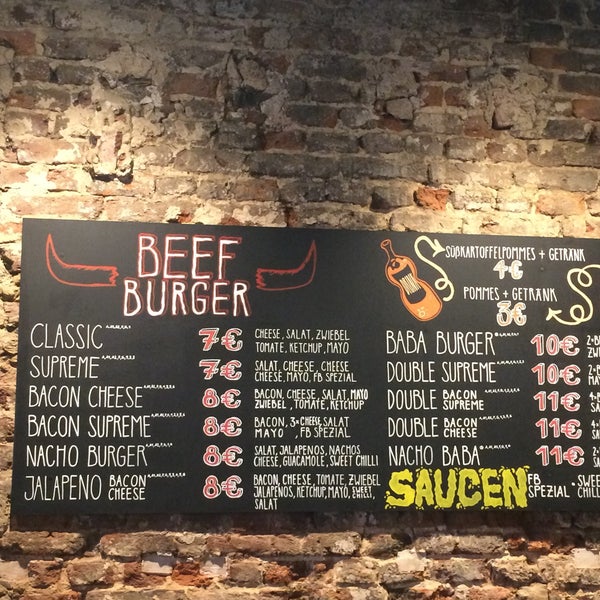 BEEF
BURGER
CLASSIC 7€ CHEESE, SALAT, ZWIEBEL
TOMATE, KETCHUP, MAYO
SUPREME 7€ SALAT, CHEESE, CHEESE
CHEESE, MAYO, FB SPEZIAL
BACON CHEESE 8€ BACON, CHEESE, SALAT, MAYO
ZWIEBEL, TOMATE, KETCHUP
BACON SUPREME 8€ BACON, 3×CHEESE, SALAT
MAYO, FB SPEZIAL
NACHO BURGER 8€ SALAT, JALAPENOS, NACHOS
CHEESE, GUACAMOLE, SWEET CHILLI
JALAPENO BACON CHEESE 8€ BACON, CHEESE, TOMATE, ZWIEBEL
JALAPENOS, KETCHUP, MAYO, SWEET,
SALAT
SÜßKARTOFFELPOMMES + GETRÄNK
4€
POMMES + GETRÄNK
3€
BABA BURGER 10€
DOUBLE SUPREME 10€
DOUBLE BACON SUPREME 11€
DOUBLE BACON CHEESE 11€
NACHO BABA 11€
SAUCEN FB SPEZIAL • SWEE
CHIL